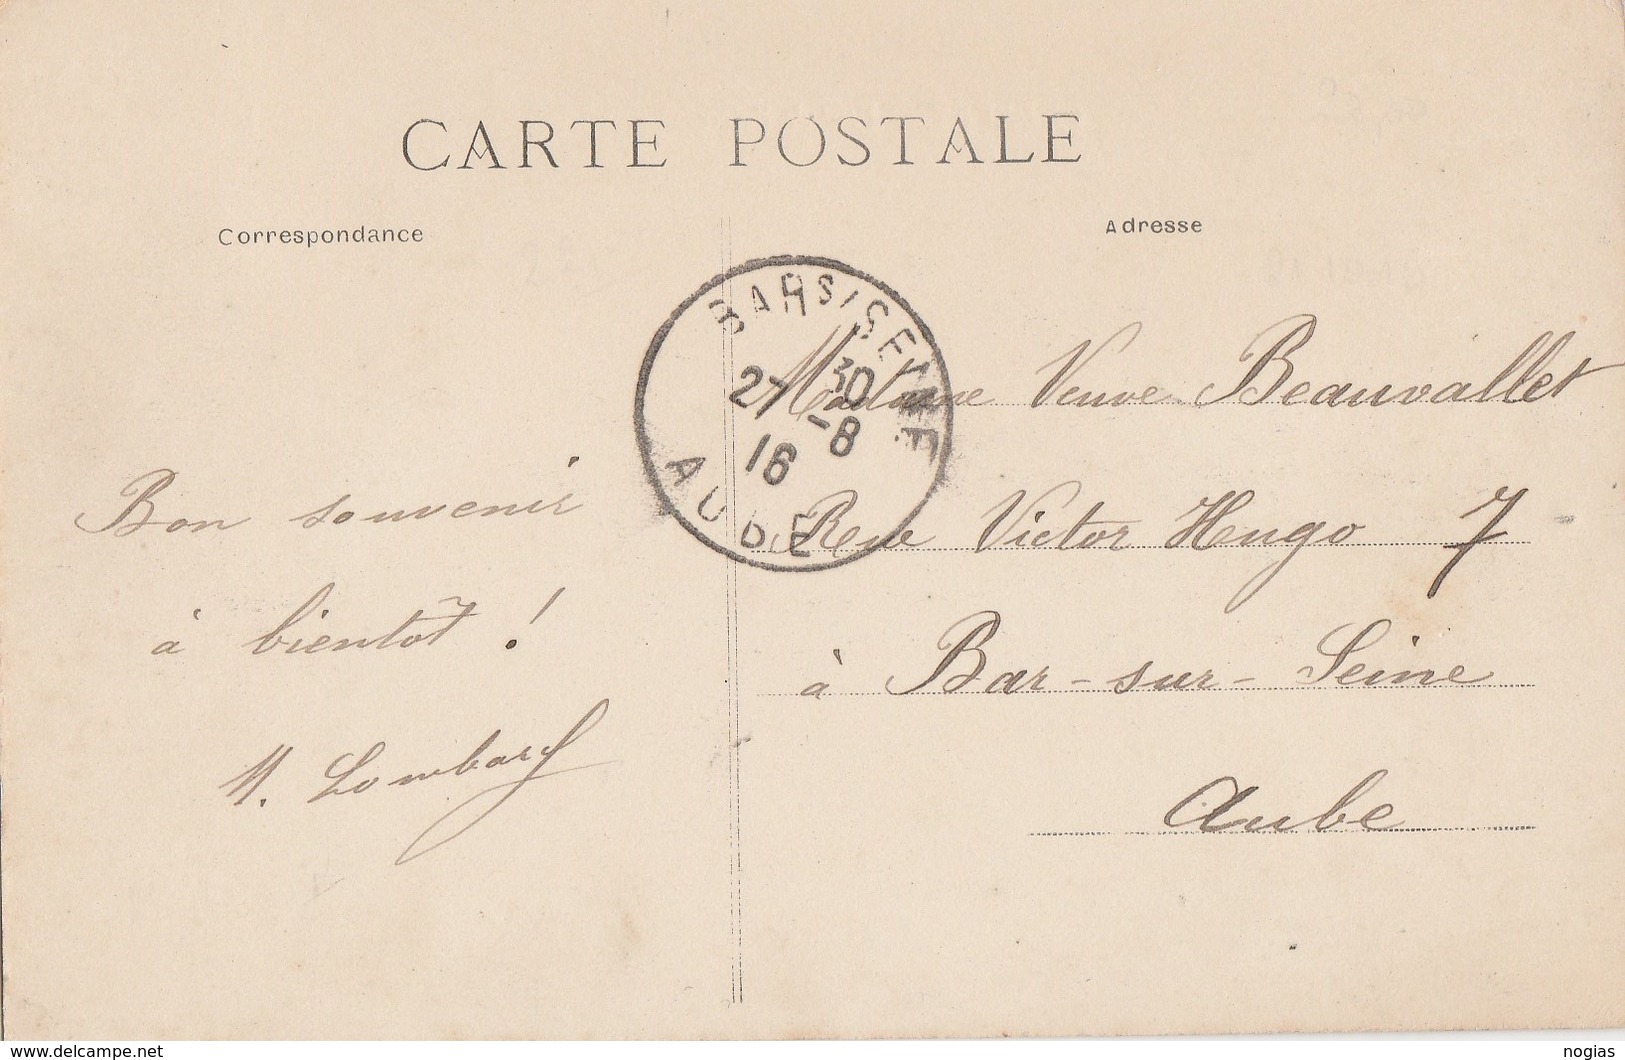 CARTE POSTALE
Correspondance
Adresse
BAR S/SEINE
27 30
-8
16
AUBE
Madame Veuve Beauvallet
Rue Victor Hugo 7
à Bar-sur-Seine
Aube
Bon souvenir
à bientôt !
M. Lombard
www.delcampe.net
nogias